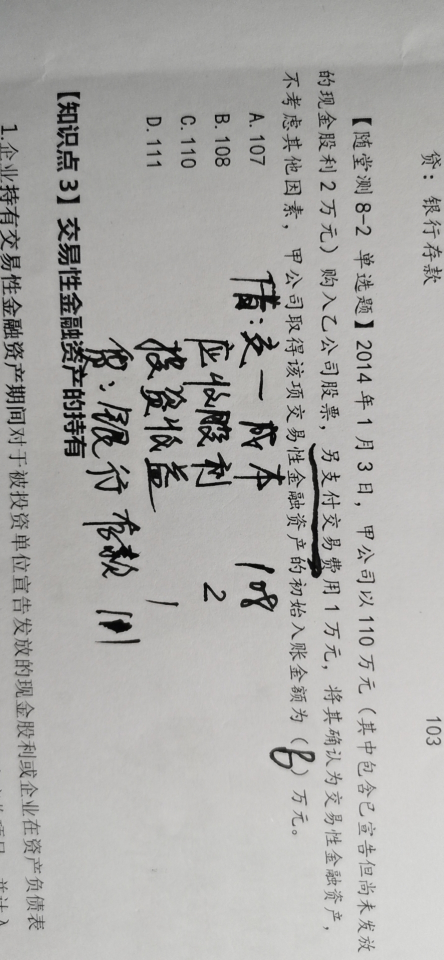 贷：银行存款
103
【随堂测8-2 单选题】2014年1月3日，甲公司以110万元（其中包含已宣告但尚未发放
的现金股利2万元）购入乙公司股票，另支付交易费用1万元，将其确认为交易性金融资产，
不考虑其他因素，甲公司取得该项交易性金融资产的初始入账金额为（B）万元。
A. 107
B. 108
C. 110
D. 111
借：交－成本 108
应收股利 2
投资收益 1
贷：银行存款 111
【知识点3】交易性金融资产的持有
1.企业持有交易性金融资产期间对于被投资单位宣告发放的现金股利或企业在资产负债表